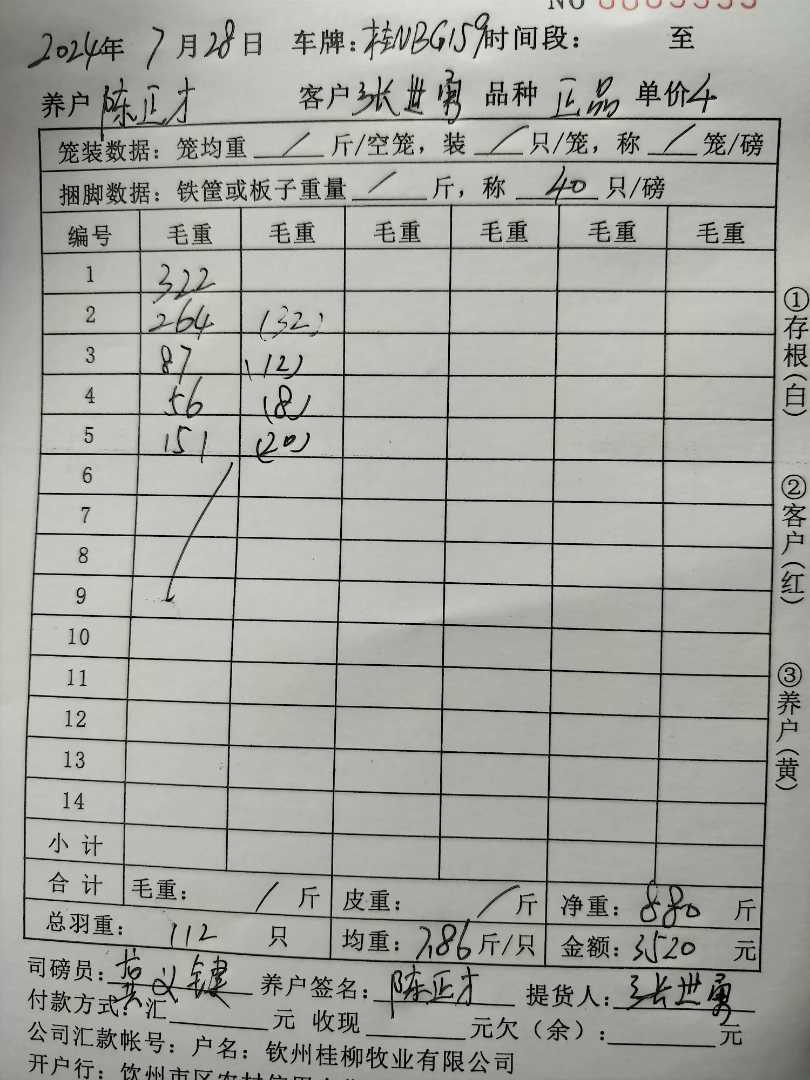 NO
2024年 7月28日 车牌:桂NBG159时间段: 至
养户 陈正才 客户 张世勇 品种 正品 单价4
笼装数据: 笼均重 / 斤/空笼, 装 / 只/笼, 称 / 笼/磅
捆脚数据: 铁筐或板子重量 / 斤, 称 40 只/磅
编号 毛重 毛重 毛重 毛重 毛重 毛重
1 322
2 264 (32)
3 87 (12)
4 56 (8)
5 151 (20)
6
7
8
9
10
11
12
13
14
小 计
合 计 毛重: / 斤 皮重: / 斤 净重: 880 斤
总羽重: 112 只 均重: 7.86 斤/只 金额: 3520 元
司磅员: 义键 养户签名: 陈正才 提货人: 张世勇
付款方式: 汇 元 收现 元欠(余): 元
公司汇款帐号: 户名: 钦州桂柳牧业有限公司
开户行: 钦州市区农村信用
①存根(白)
②客户(红)
③养户(黄)